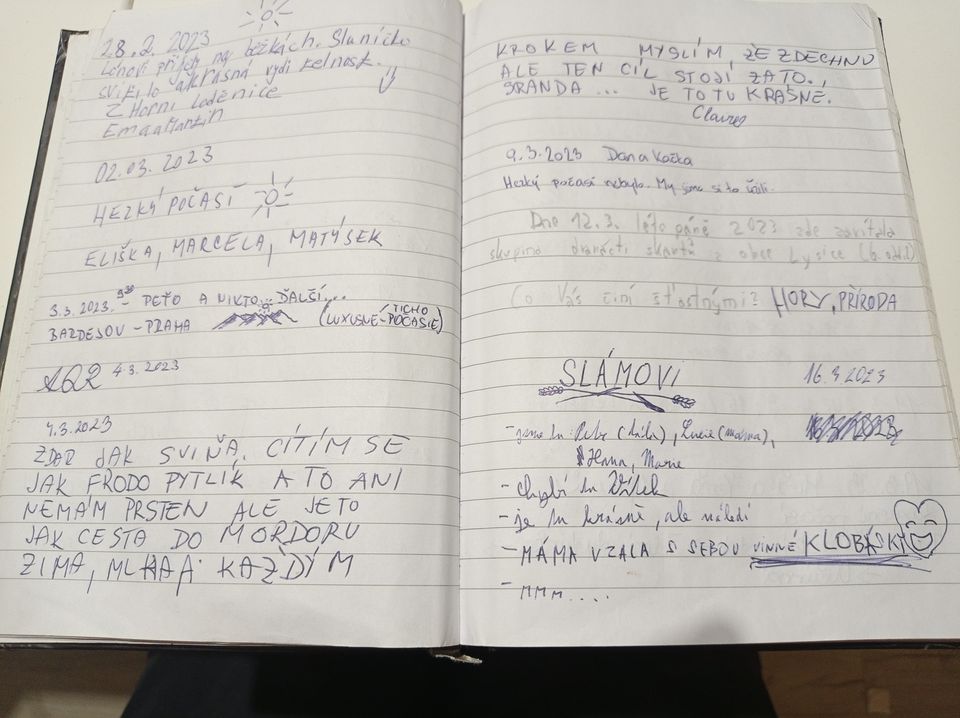 28.2. 2023
příběh na běžkách. Sluníčko
svítilo a krásná viditelnost.
Z Horní Loděnice
Ema a Martin
02.03. 2023
HEZKÝ POČASÍ
ELIŠKA, MARCELA, MATÝSEK
3.3.2023. - PEŤO A NIKTO ĎALŠÍ...
BARDEJOV - PRAHA (TICHO LUXUSNÉ - POČASIE)
4.3.2023
4.3.2023
ZDAR JAK SVIŇA. CÍTÍM SE
JAK FRODO PYTLÍK A TO ANI
NEMÁM PRSTEN ALE JE TO
JAK CESTA DO MORDORU
ZIMA, MLHA A KAŽDÝM
KROKEM MYSLÍM, ŽE ZDECHNU
ALE TEN CÍL STOJÍ ZA TO.,
SRANDA ... JE TO TU KRÁSNÉ.
9.3.2023 Dana Kočka
Hezký počasí nebylo. My jsme si to užili.
Dne 12.3. léta páně 2023 zde zavítala
skupina dvanácti skautů z obce Lysice (6. oddíl)
Co Vás činí šťastnými? HORY, PŘÍRODA
SLÁMOVI 16.3.2023
- jsme tu Petr (táta), Lucie (máma),
Hana, Marie
- chybí tu Vítek
- je tu krásně, ale náledí
- MÁMA VZALA S SEBOU VINNÉ KLOBÁSKY
- MMM....